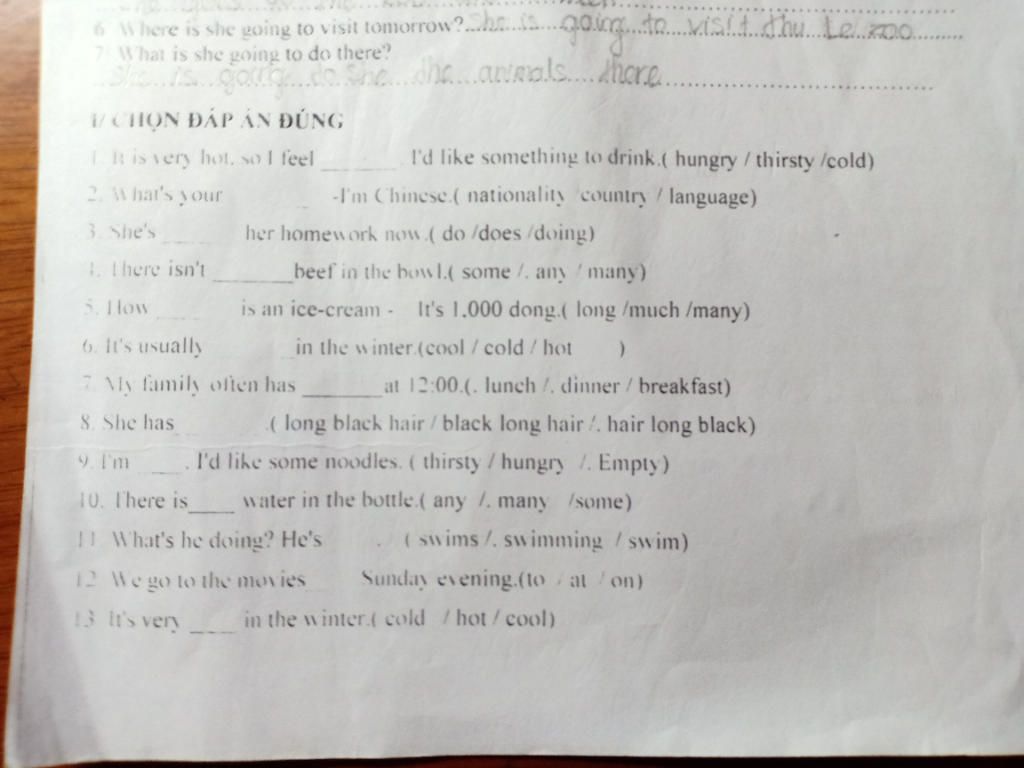 6. Where is she going to visit tomorrow? She is going to visit thu Le zoo
7. What is she going to do there?
She is going do she the animals there
I/ CHỌN ĐÁP ÁN ĐÚNG
1. It is very hot, so I feel ______ . I'd like something to drink.( hungry / thirsty /cold)
2. What's your -I'm Chinese.( nationality country / language)
3. She's ____ her homework now.( do /does /doing)
4. There isn't _______beef in the bowl.( some /. any / many)
5. How ____ is an ice-cream - It's 1.000 dong.( long /much /many)
6. It's usually in the winter.(cool / cold / hot )
7. My family often has _______at 12:00.(. lunch /. dinner / breakfast)
8. She has .( long black hair / black long hair /. hair long black)
9. I'm ____ . I'd like some noodles. ( thirsty / hungry /. Empty)
10. There is____ water in the bottle.( any /. many /some)
11 What's he doing? He's . ( swims /. swimming / swim)
12 We go to the movies Sunday evening.(to / at / on)
13. It's very ____ in the winter.( cold / hot / cool)